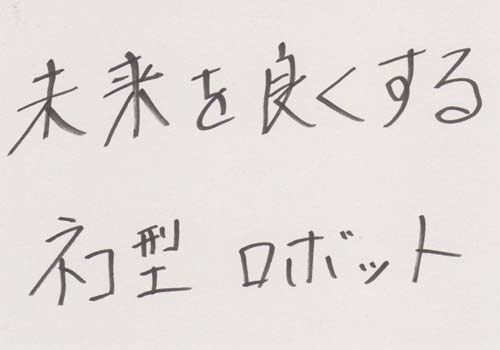 未来を良くする
ネコ型 ロボット